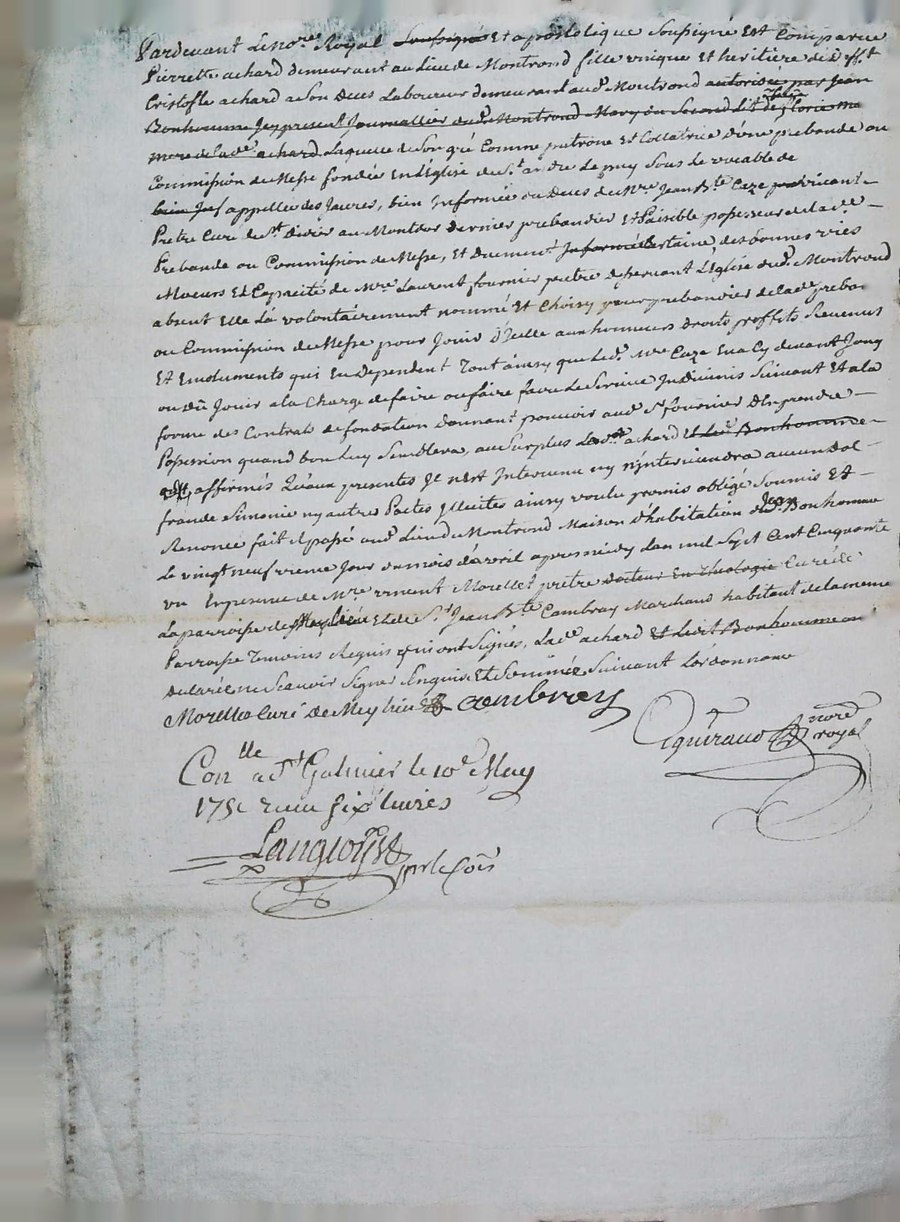 Pardevant Le no.re Royal Soussigné Et apostolique Soussigné Est Comparue
Pierrette achard demeurant au Lieu de Montrond fille unique Et heritiere de
Cristofle achard a Son Deces Laboureur demeurant aud. Montrond autorisée par Jean
Bonhomme Jcy present Journallier aud. Montrond Mary du Second Lit de florie
mere de lad. achard Laquelle de Son gré Comme patrone Et Collatrice d'une prebande ou
Commission de Messe fondée En L'Eglise de St. andré Le puy Sous Le vocable de
appellée des Jaures, bien Informée du Deces de Mre Jean Bte Caze vivant
Pretre Curé de St. Didier au Montdor Dernier prebandier Et Paisible possesseur de lad.
Prebande ou Commission de Messe, Et Duement Informée Certaine, des bonnes vies
Moeurs Et Capacité de Mre Laurent fournier pretre desservant L'Eglise dud. Montrond
absent Elle L'a volontairement nommé Et Choisy pour prebandier de lad. preban
ou Commission de Messe pour Jouir d'Jcelle aux honneurs Droits proffits Revenus
Et Emoluments qui En dependent Tout ainsy que led. Mre Caze En a Cy devant Jouy
ou dû Jouir a la Charge de faire ou faire faire Le Service Jndivinis Suivant Et a la
forme des Contrats de fondation donnant pouvoir aud. Sr fournier D'En prendre
Possession quand bon Luy Semblera, au Surplus Lad. achard Et Led. Bonhomme
affirmés Qu'aux presentes Jl n'Est Intervenu ny n'interviendra aucun dol
fraude Simonie ny autres Pactes Jllicites ainsy voulu promis obligé Soumis Et
Renoncé fait Et passé aud. Lieu de Montrond Maison d'habitation dud. Jean Bonhomme
Le vingt neufvieme Jour du mois d'avril apres midy L'an mil Sept Cent Cinquante
un En presence de Mre Morellet pretre Docteur En Theologie Curé de
La parroisse de Meylieu Et de Sr. Jean Bte Cambray Marchand habitant de la meme
Parroisse Temoins Requis qui ont Signés, Lad. achard Et Ledit Bonhomme ont
Declaré ne Scavoir Signer Enquis Et Sommée Suivant L'ordonnance
Morellet Curé De Meylieu Cambray
no.re royal
Con.lle a St Galmier le 10e May
1751 recu six livres
Langlois